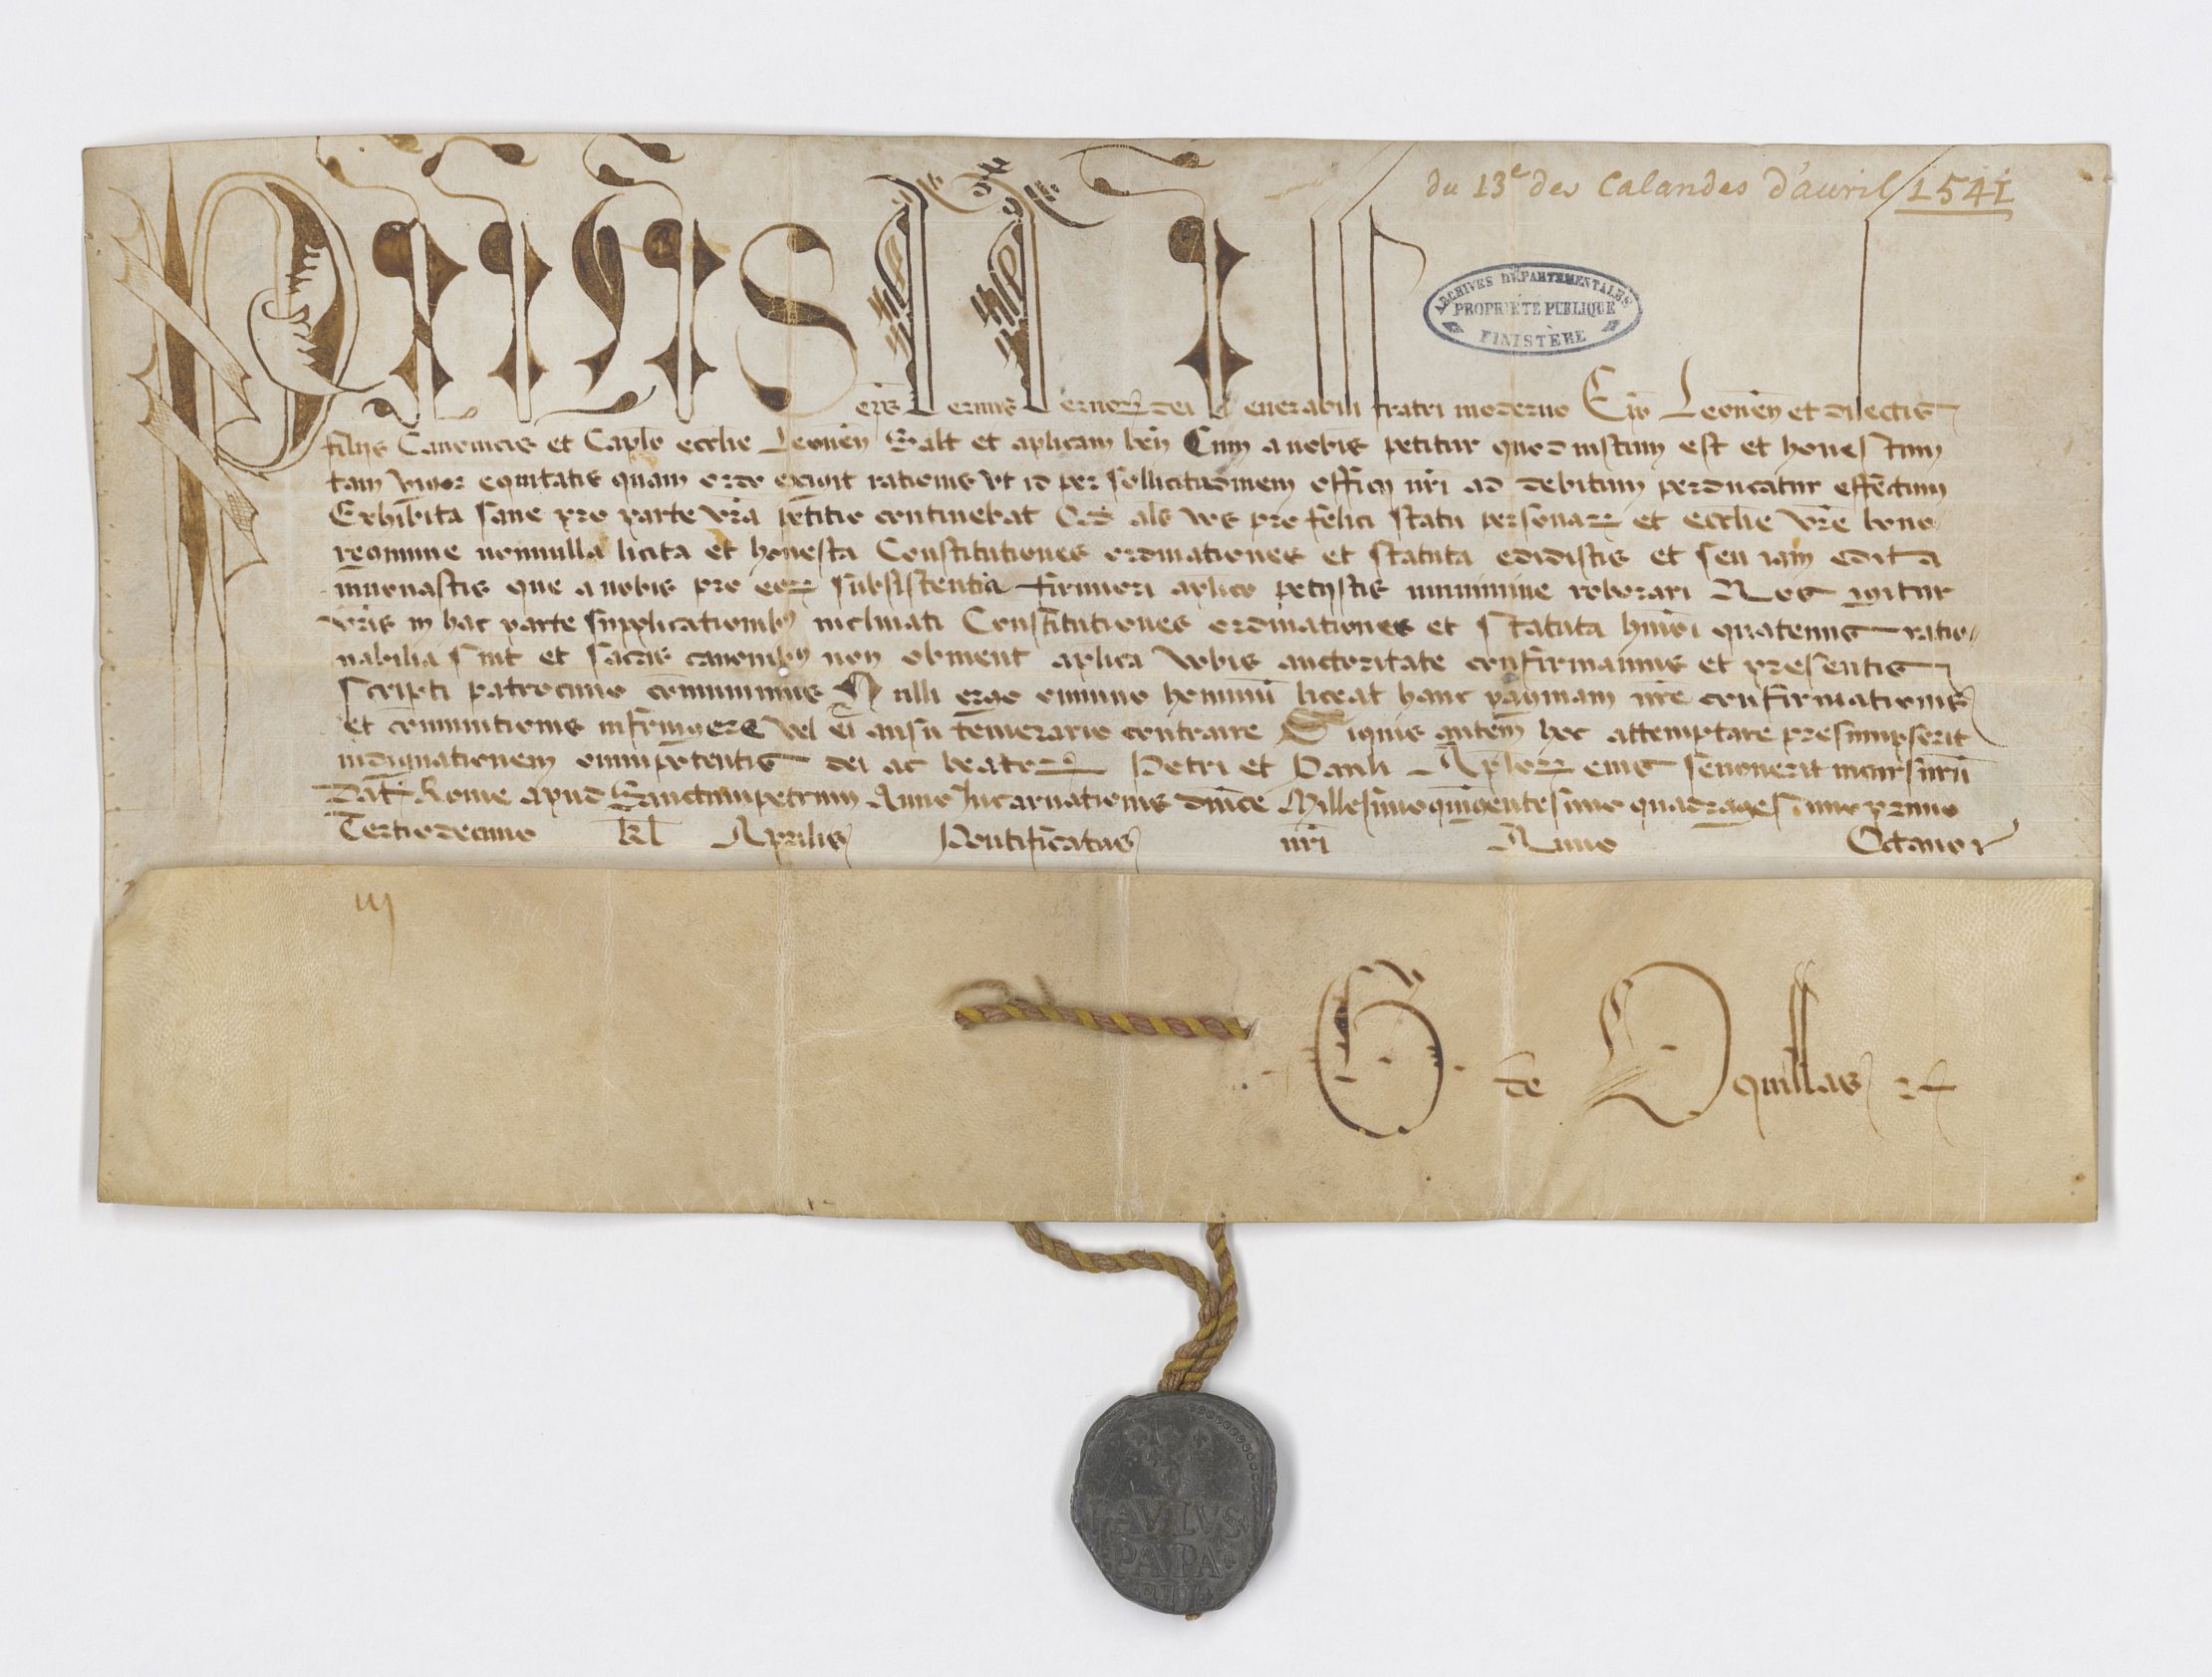 du 13e des Calandes d'auril 1541
ARCHIVES DÉPARTEMENTALES
PROPRIÉTÉ PUBLIQUE
FINISTÈRE
PAULUS ep̄s seruus seruor dei Venerabili fratri moderno Ep̄o Leoneñ et dilectis
filijs Canonicis et Caplo eccl̄ie Leoneñ Salt et aplicam ben̄ Cum a nobis petitur quod iustum est et honestum
tam vigor equitatis quam ordo exigit rationis vt id per sollicitudinem officij nr̄i ad debitum perducatur effectum
Exhibita sane pro parte vr̄a petitio continebat q̄d als vos pro felici statu personar et eccl̄ie vr̄e bono
regimine nonnulla licita et honesta Constitutiones ordinationes et statuta edidistis et seu iam edita
innouastis que a nobis pro eor subsistentia firmiori aplico petijstis munimine roborari Nos igitur
vr̄is in hac parte supplicationibus inclinati Constitutiones ordinationes et Statuta hmōi quatenus ratio
nabilia sint et sacris canonibus non obuient aplica vobis auctoritate confirmamus et presentis
scripti patrocinio cōmunimus Nulli ergo omnino hominū liceat hanc paginam nr̄e confirmationis
et cōmunitionis infringere vel ei ausu temerario contraire Siquis autem hoc attemptare presumpserit
indignationem omnipotentis dei ac beator Petri et Pauli Aplor eius se nouerit incursurū
Dat Rome apud Sanctumpetrum Anno Incarnationis dn̄ice Millesimoquingentesimo quadragesimoprimo
Tertiodecimo kl Aprilis Pontificatus nr̄i Anno Octauo
iij
G de Aquillas
PAVLVS
PAPA
III